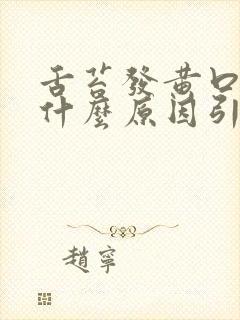 舌苔發黄口
什麼原因引
趙寧